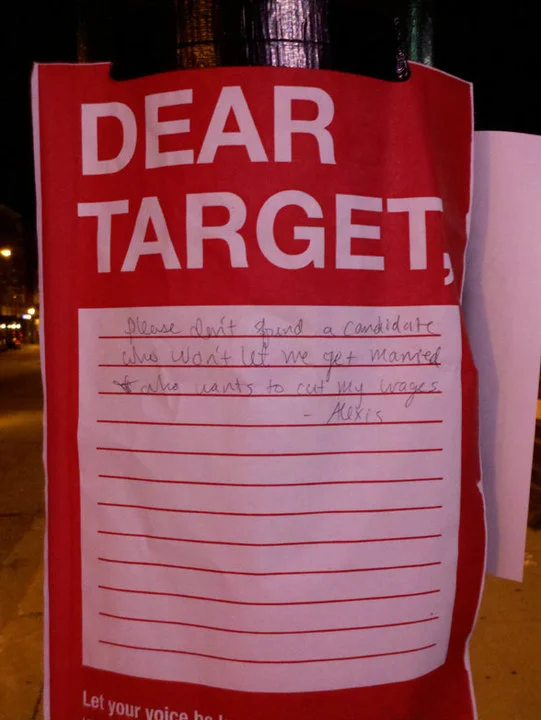 DEAR
TARGET,
Please don't fund a candidate
who won't let me get married
& who wants to cut my wages
- Alexis
Let your voice be